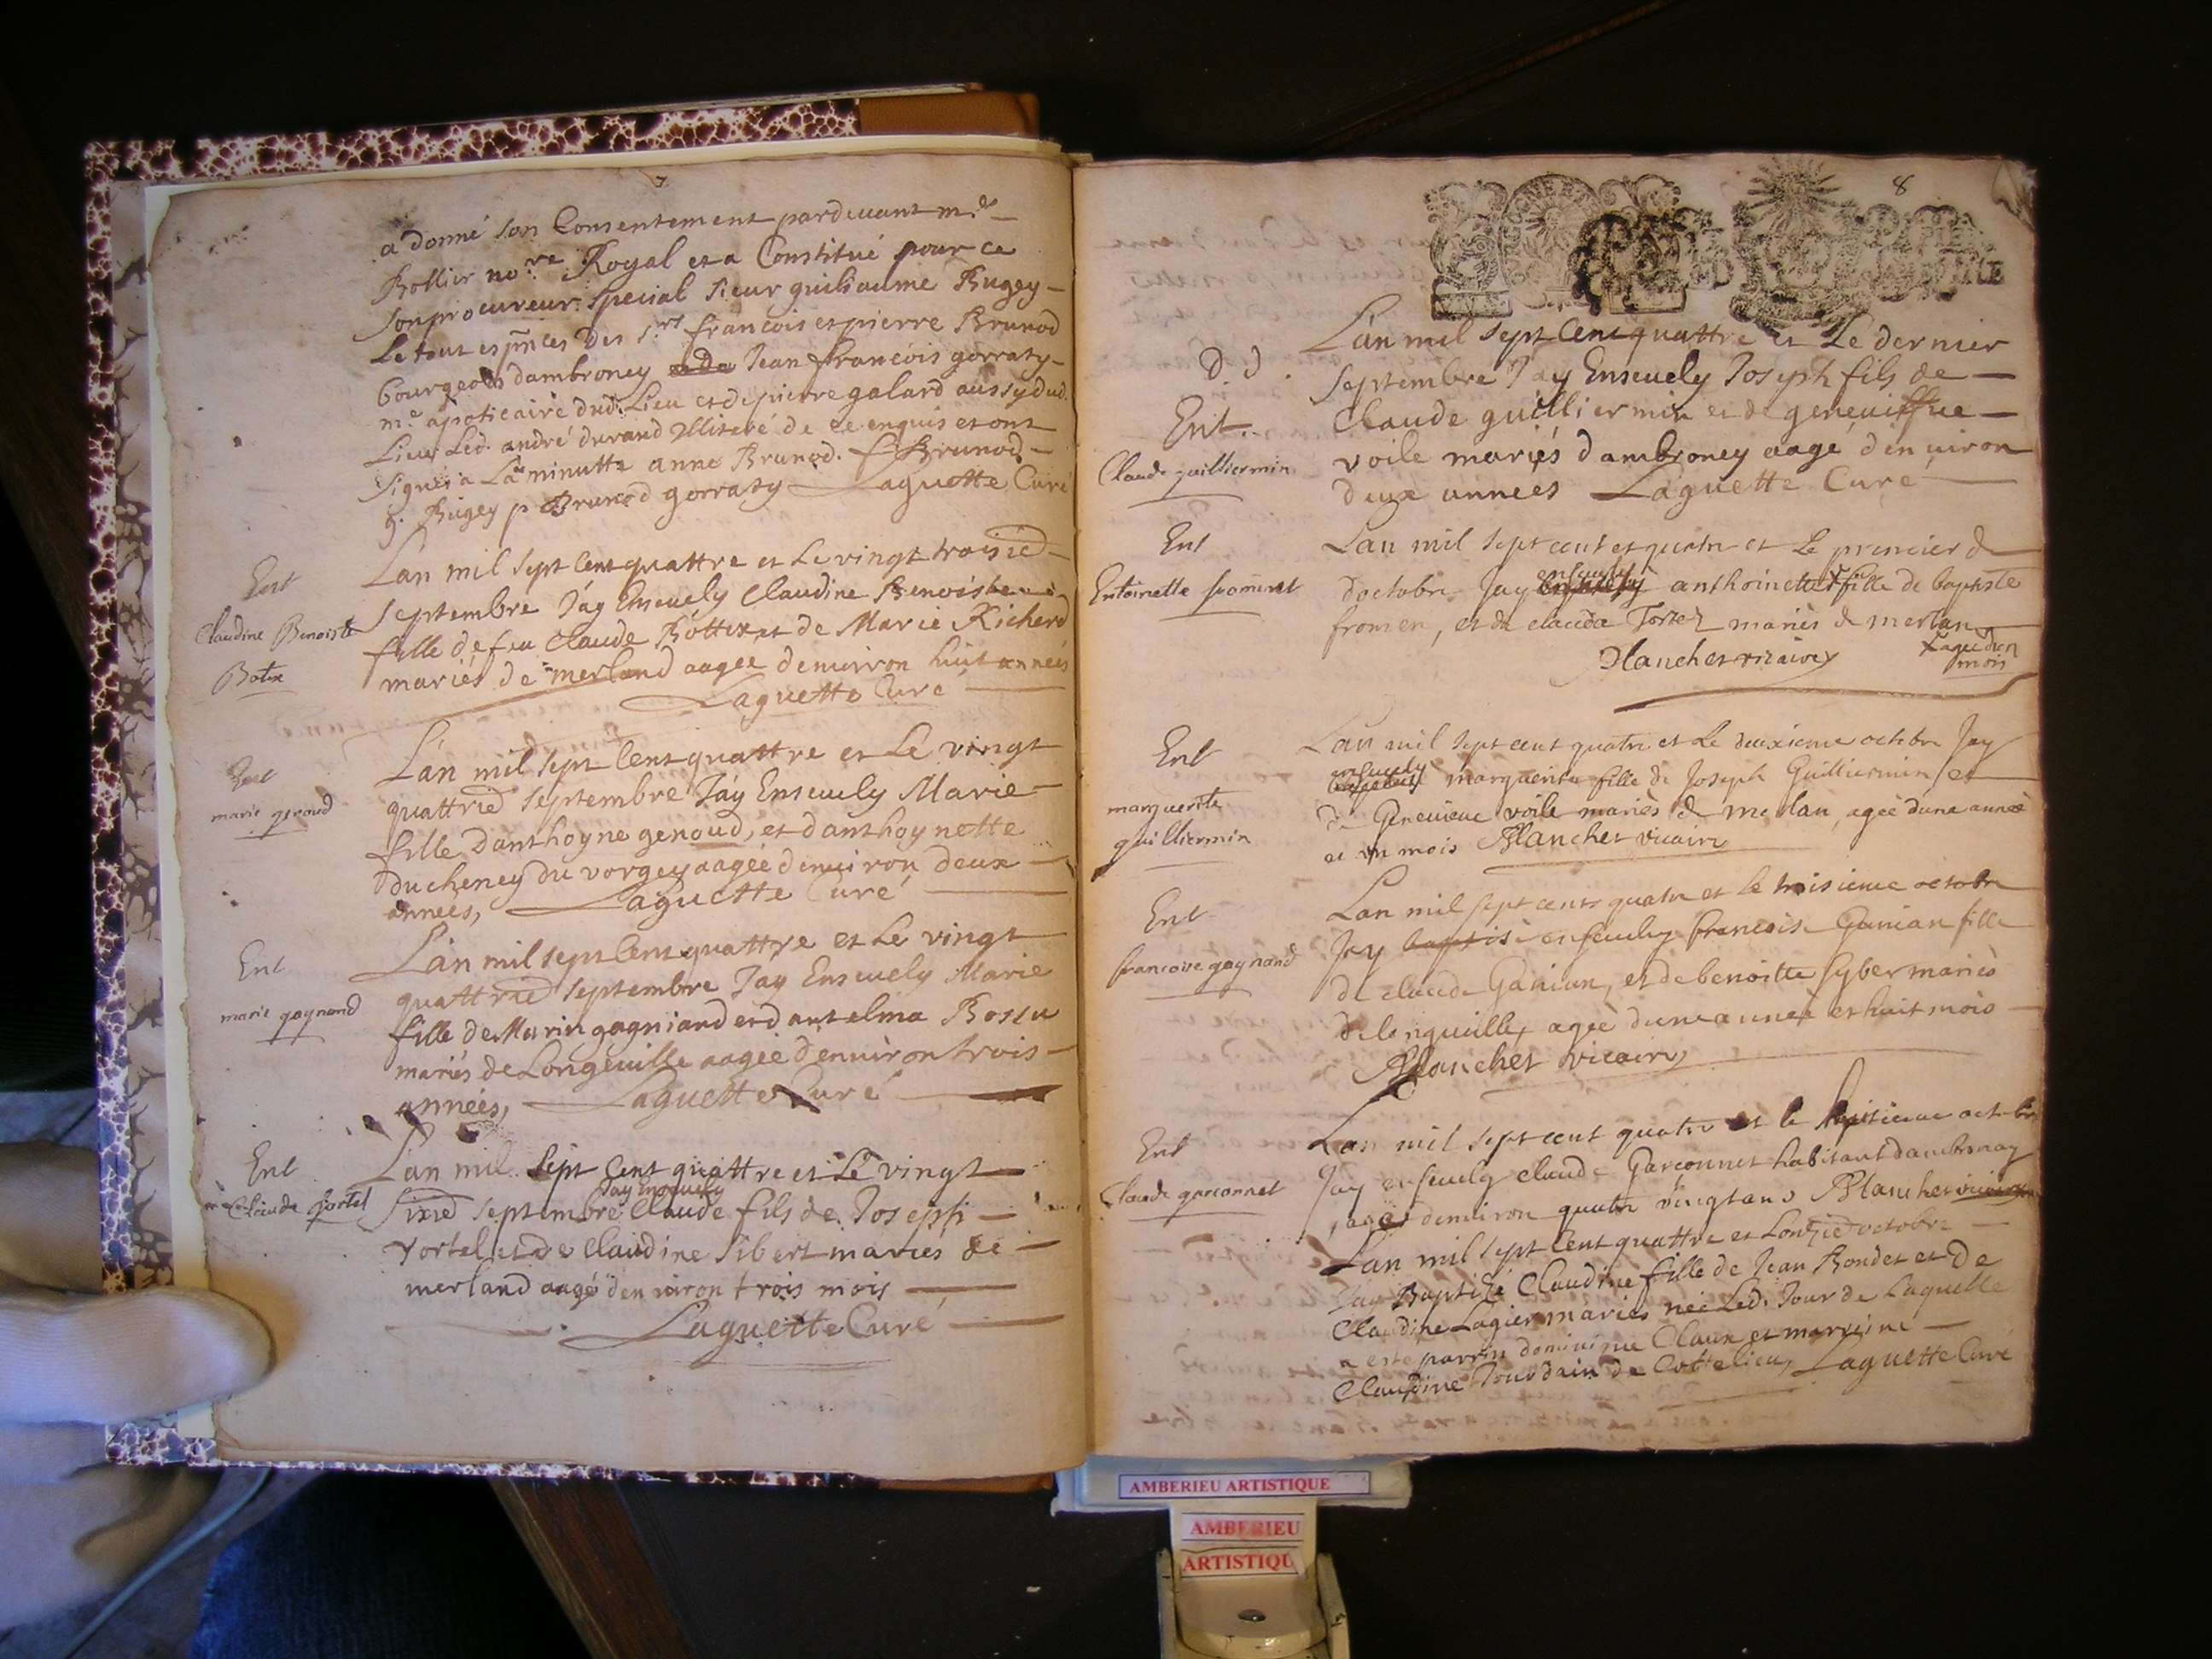 7
a donné son Consentement pardeuant m.e
Rollier no.re Royal et a Constitué pour ce
son procureur special sieur guiliaume Bugey
Le tout es pñces Des s.rs francois et pierre Brunod
bourgeois dambroney Jean francois gorraty
m.e apoticaire dud. Lieu et de pierre galard aussy dud.
Lieu Led. andré durand Illiteré de ce enquis et ont
signéz a La minutte anne Brunod. f Brunod
g. Bugey p Brunod gorraty Laguette Curé
Ent
Claudine Benoiste
Botex
Lan mil sept Cent quattre et Le vingt troisie
septembre J'ay Enseuely Claudine Benoiste
fille de feu Claude Bottex et de Marie Richerd
mariés de merland aagee denuiron huit années
Laguette Curé
Ent
marie genoud
L'an mil sept Cent quattre et Le vingt
quattrie septembre J'ay Enseuely Marie
fille Danthoyne genoud, et danthoynette
ducheney du vorgey aagée denuiron deux
années, Laguette Curé
Ent
marie gagnand
L'an mil sept Cent quattre et Le vingt
quattrie septembre Jay Enseuely Marie
fille de Marin gagniand et dantelma Bossu
mariés de Longeuille aagée denuiron trois
années, Laguette Curé
Ent
Claude fortel
L'an mil sept Cent quattre et Le vingt
sixie septembre Jay Enseuely Claude fils de Joseph
fortel et de Claudine sibert mariés de
merland aagé denuiron trois mois
Laguette Curé
8
L'an mil sept Cent quattre et Le dernier
septembre Jay Enseuely Joseph fils de
Claude guilliermin et de geneuiffue
voile mariés dambroney aagé denuiron
deux années Laguette Curé
Ent
Claude guilliermin
Ent
Entoinette froment
Lan mil sept cent et quatre et Le premier d
doctobre Jay enseuely anthoinette x fille de baptiste
fromen, et de clauda Tortel mariès de merlan
Blanchet vicaire
x agee dun
mois
Ent
marguerite
guilliermin
Lan mil sept cent quatre et Le deuxieme octobre Jay
enseuely marguerite fille de Joseph Guilliermin et
de Geneuieue voile mariès de merlan, ageè dune anneè
et un mois Blanchet vicaire
Ent
francoise gagnand
Lan mil sept cent quatre et le troisieme octobre
Jay baptisè enseuely francoise Ganian fille
de claude Ganian, et de benoitte syber mariès
de longuille, ageè dune anneè et huit mois
Blanchet vicaire
Ent
Claude garconnet
Lan mil sept cent quatre et le huitieme octobre
Jay enseuely claude Garconnet habitant dambronay
agè denuiron quatre vingt ans Blanchet vicaire
Lan mil sept Cent quattre et Lonzie octobre
Jay Baptizé Claudine fille de Jean Bondet et de
Claudine Lagier mariés née Led. Jour de Laquelle
a este parrin dominique Claux et marreine
Claudine Jourdain de Cottelieu, Laguette Curé
AMBERIEU ARTISTIQUE
AMBERIEU
ARTISTIQU